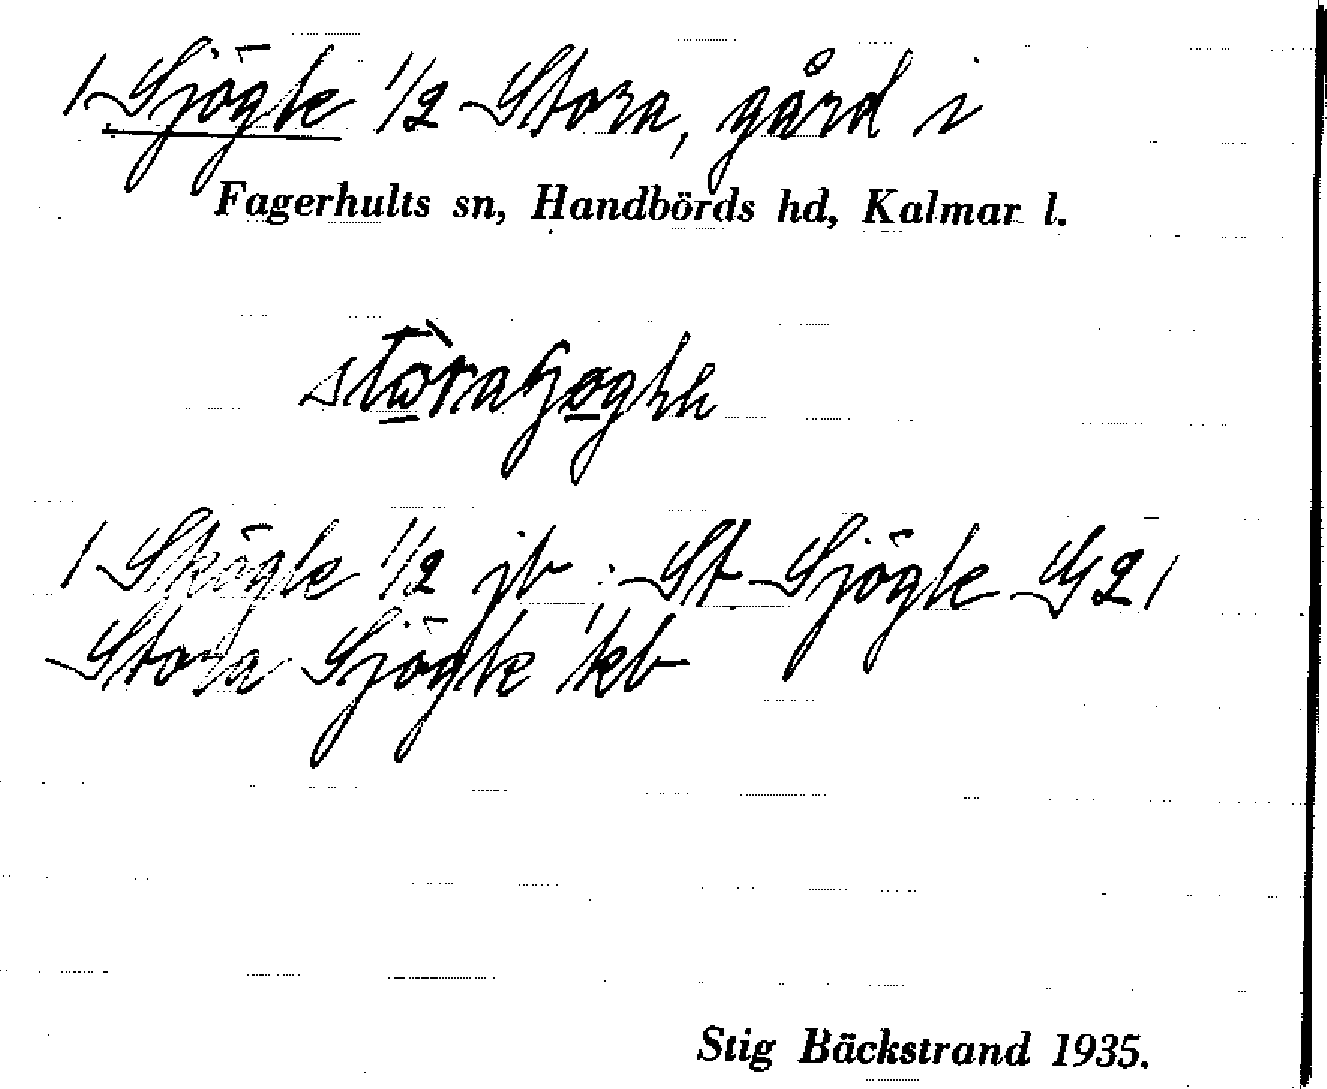 1 Sjögle 1/2 Stora, gård i
Fagerhults sn, Handbörds hd, Kalmar l.
1 Skögle 1/2 jb : St Sjögle G21
Stora Sjögle kb
Stig Bäckstrand 1935.